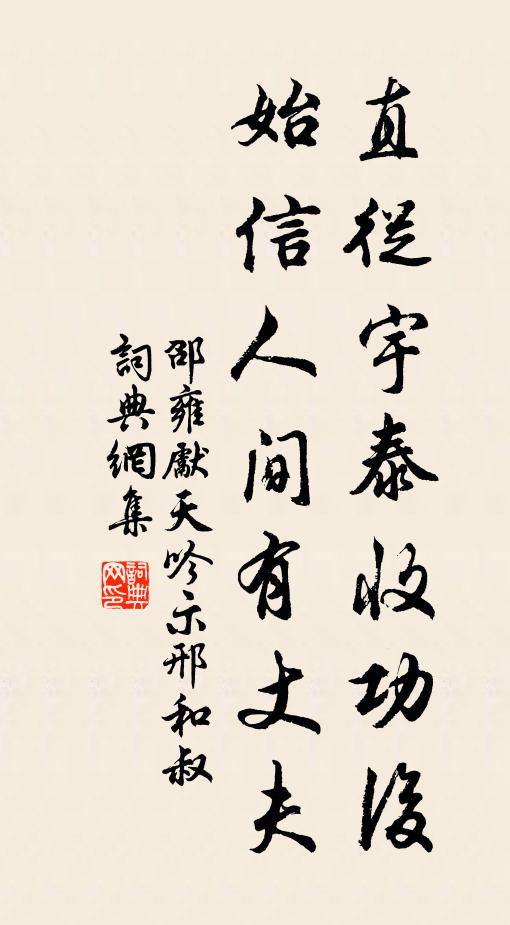 直從宇泰收功後
始信人間有丈夫
邵雍獻天吟示邢和叔
詞典網集
詞典网印